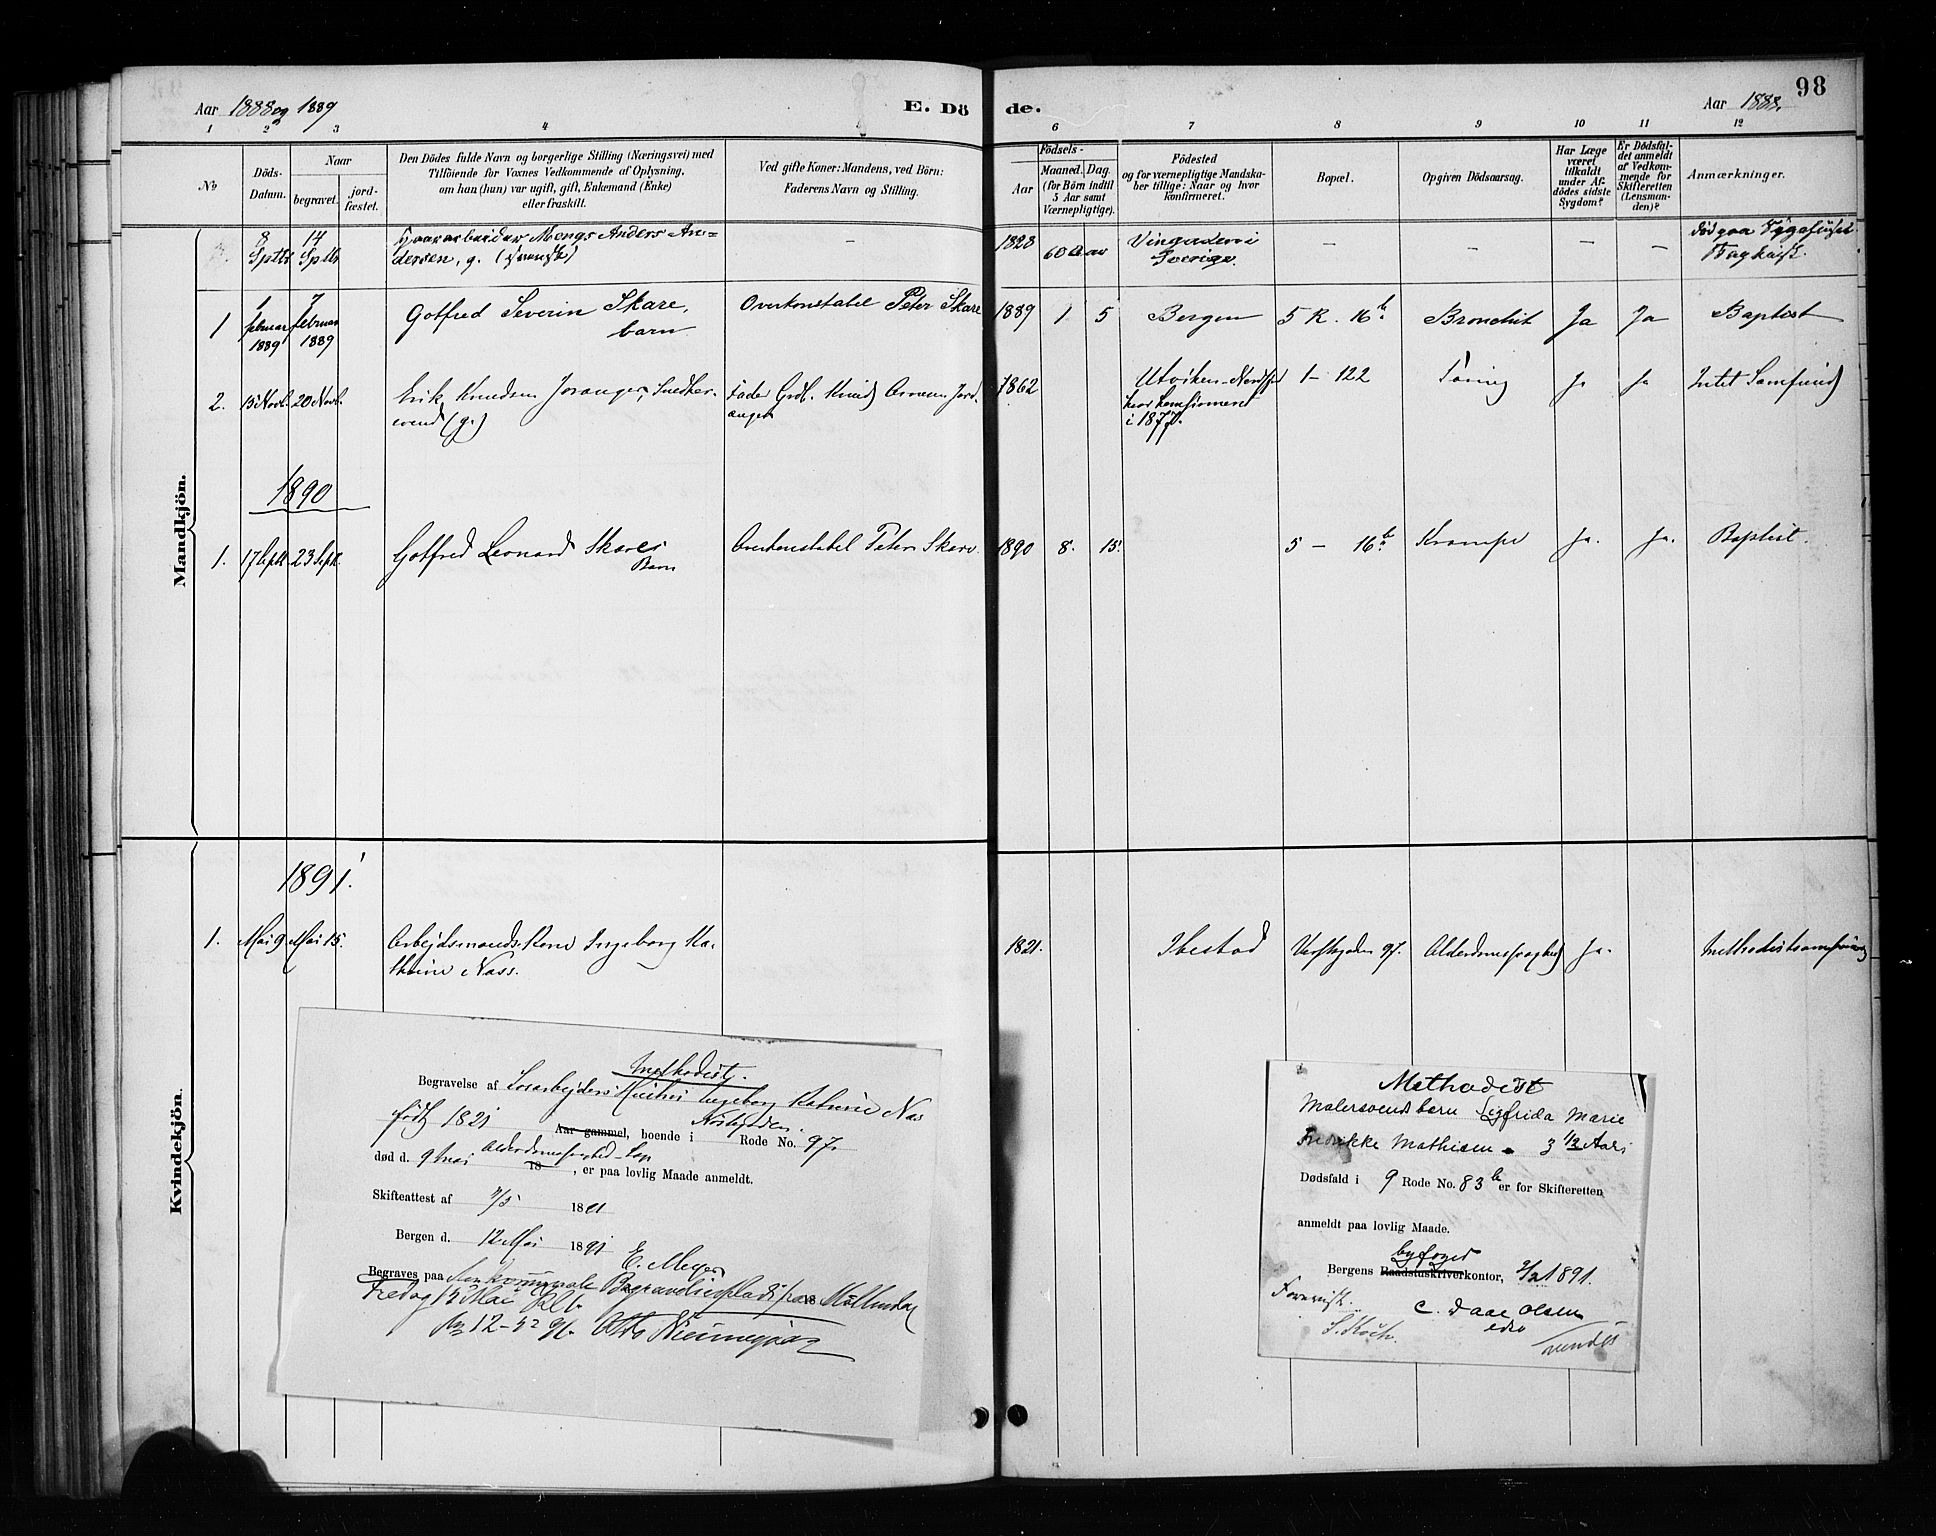 98
Aar 1888 og 1889
E. Dö
de.
Aar 1888.
1 2 3 4
6 7 8 9 10 11 12
No
Döds-
Datum.
Naar
begravet.
jord-
fæstet.
Den Dödes fulde Navn og borgerlige Stilling (Næringsvei) med
Tilföiende for Voxnes Vedkommende af Oplysning,
om han (hun) var ugift, gift, Enkemand (Enke)
eller fraskilt.
Ved gifte Koner: Mandens, ved Börn:
Faderens Navn og Stilling.
Födsels-
Aar
Maaned.
Dag.
(for Börn indtil
5 Aar samt
Værnepligtige).
Födested
og for værnepligtige Mandska-
ber tillige: Naar og hvor
konfirmeret.
Bopæl.
Opgiven Dödsaarsag.
Har Læge
været
tilkaldt
under Af-
dödes sidste
Sygdom?
Er Dödsfal-
det anmeldt
af Vedkom-
mende for
Skifteretten
(Lensman-
den)?
Anmærkninger.
Mandkjön.
8 Sptbr 14 Sptbr
Anders An-
dersen, g. (svensk)
1828 60 Aar
Sverige.
1 1 februar 1889 7 februar 1889 Gotfred Severin Skare, barn Overkonstabel Peter Skare 1889 1 5 Bergen 5 R. 16 b Bronchit Ja Ja Baptist
2. 15 Novb. 20 Novb. Erik Knudsen Joranger, Snedker-
svend (g.)
Fader Grdb. Knud
Jord-
anger
1862 Utviken - Nordfj
hvor konfirmeret
i 1877.
1 - 122 Tæring Ja Ja Intet Samfund
1890
1. 17 Sept. 23 Sept. Gotfred Leonard Skares Barn Overkonstabel Peter Skare. 1890 8. 15. 5 - 16 b Krampe Ja. Ja. Baptist.
Kvindekjön.
1891.
1. Mai 9 Mai 15. Arbejdsmands Kone Ingeborg Ka-
thrine Nass.
1821. Ibestad 97. Alderdomssvaghed Ja. Methodistsamfund
Methodist.
Begravelse af Ingeborg Katrine Nas
født 1821 Aar gammel, boende i Rode No. 97
død d. 9 Mai Alderdomssvaghed 18 , er paa lovlig Maade anmeldt.
Skifteattest af 9/5 1891
Bergen d. 12 Mai 1891
E. Meyer
Begraves paa den kommunale Begravelsesplads paa Møllendal
Fredag 15 Mai Kl.
Methodist
Malersvends barn Sigfrida Marie
Fredrikke Mathisen 3 1/2 Aar
Dødsfald i 9 Rode No. 83 b er for Skifteretten
anmeldt paa lovlig Maade.
byfoged
Bergens Raadstuskriverkontor, 2/2 1891.
C. Daae Olsen
vendes